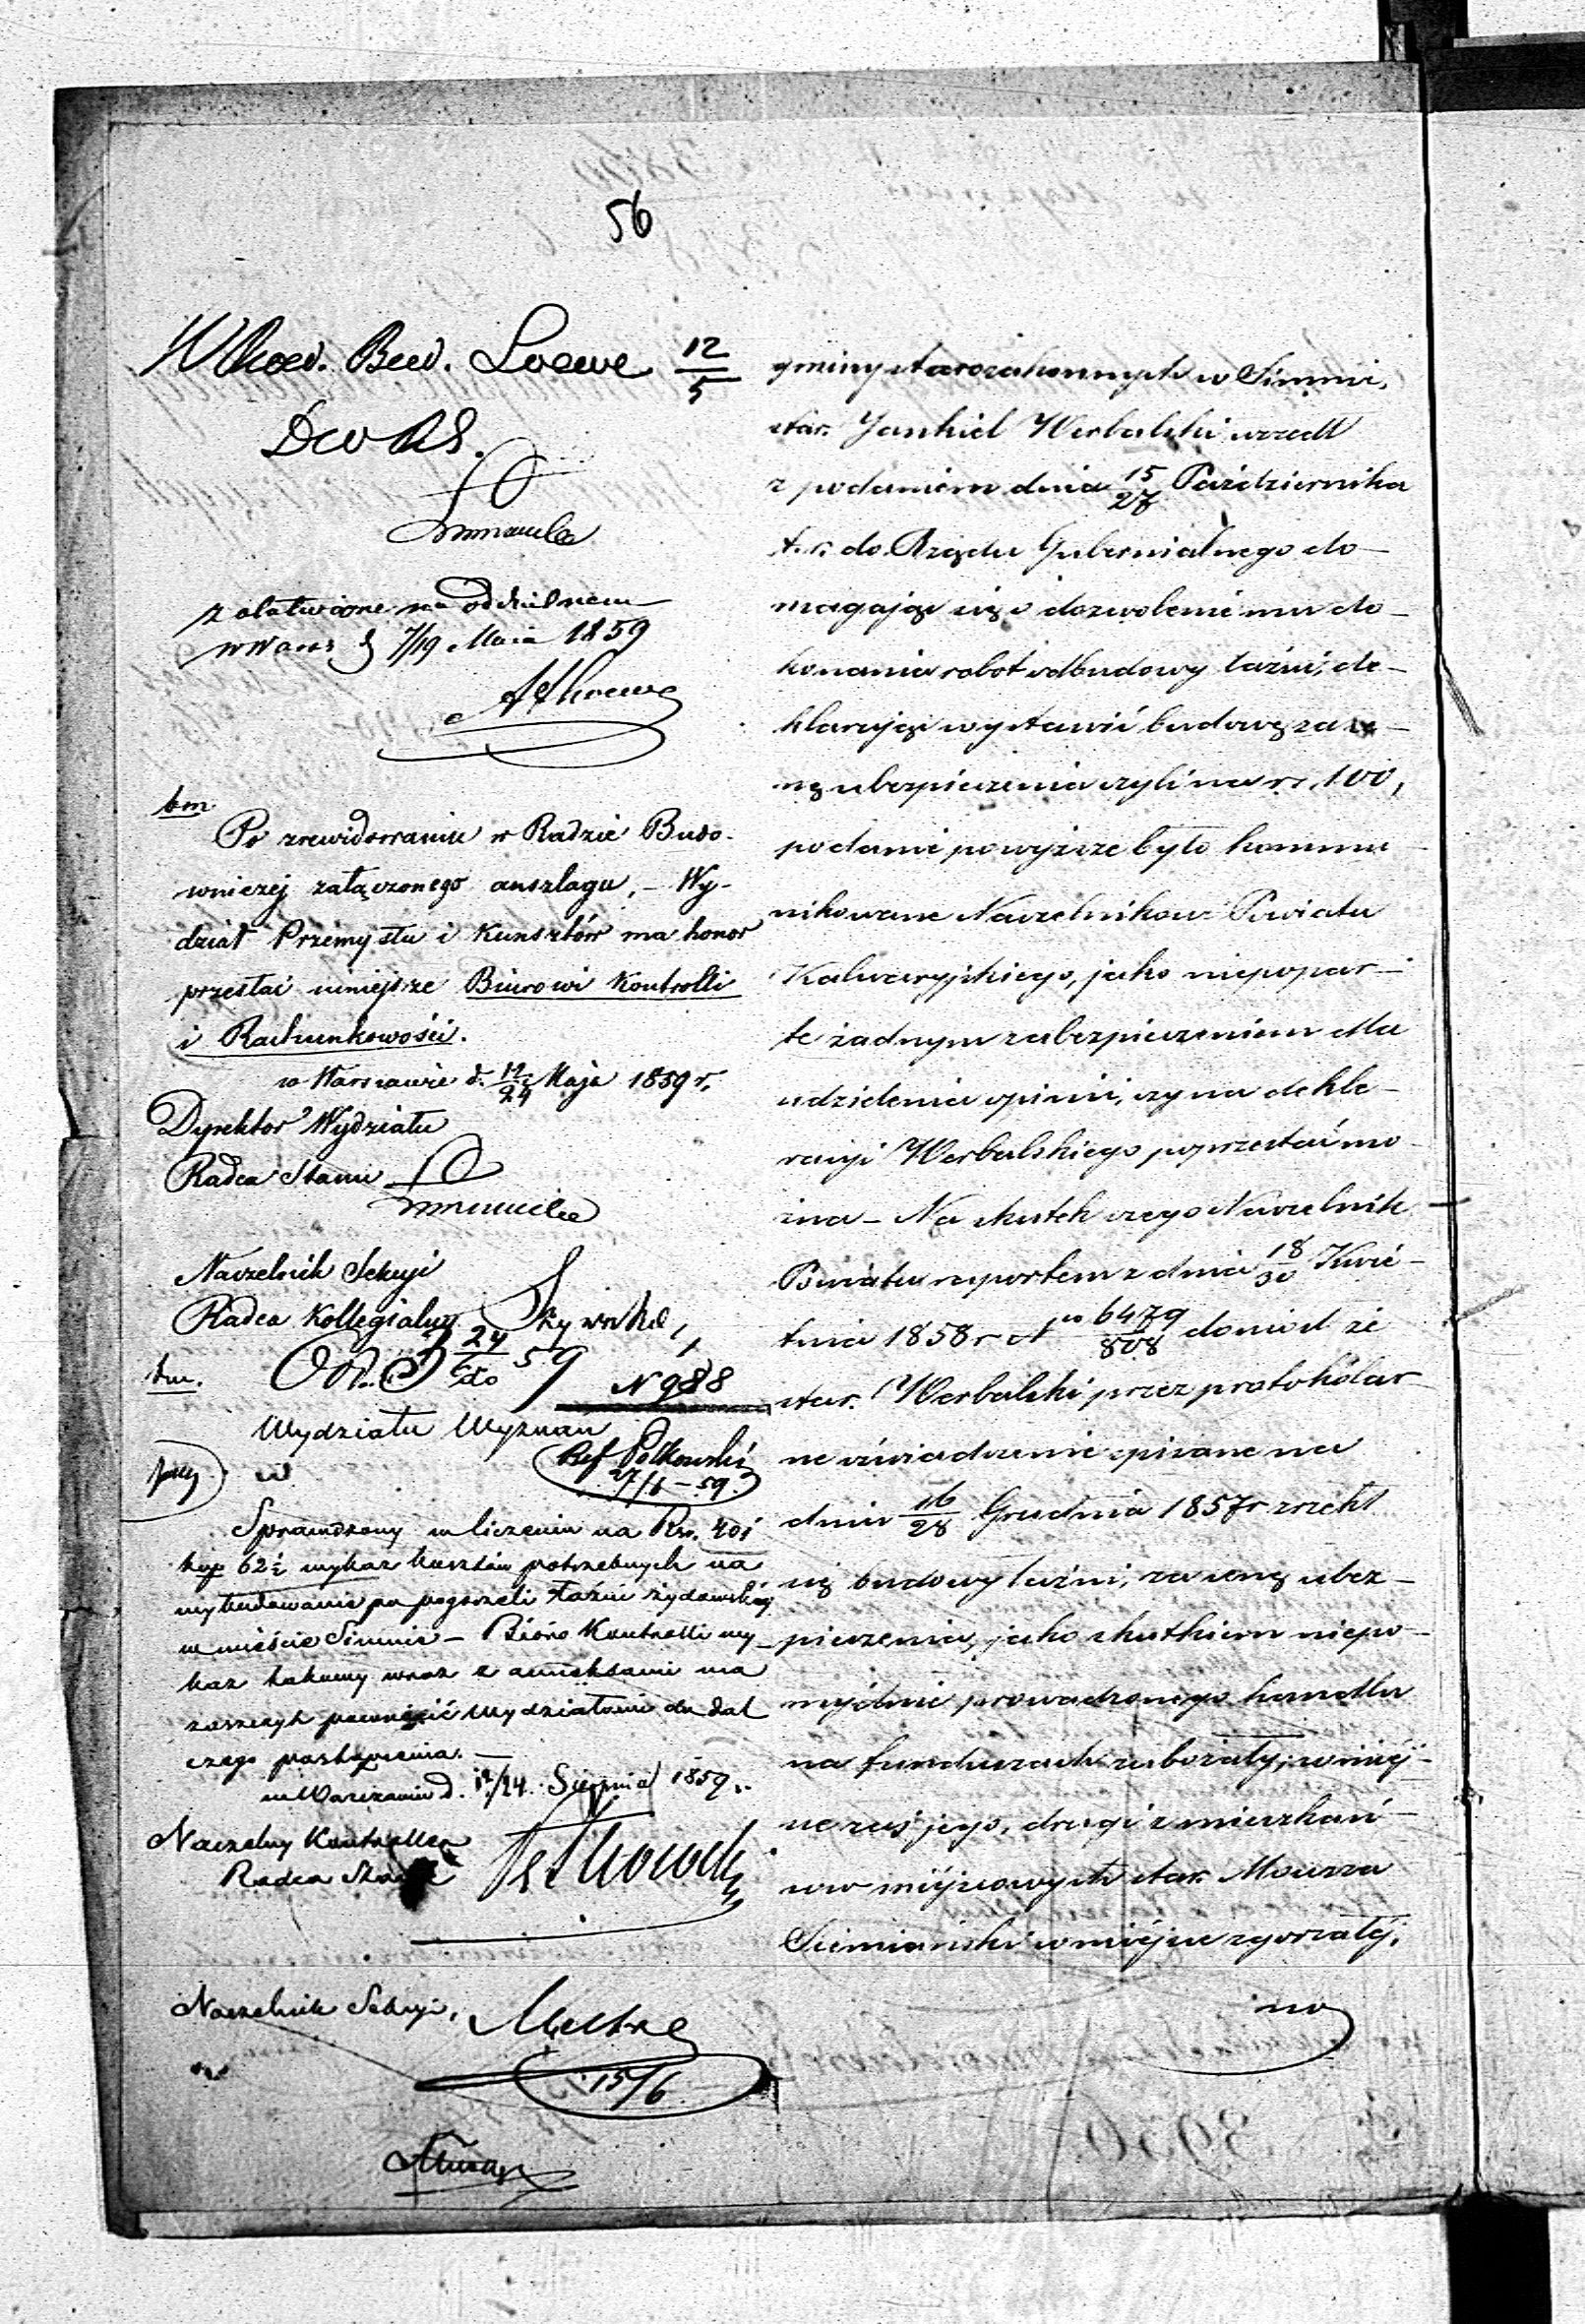 56
Loewe 12/5
załatwione na oddzielnem
w Wars d 7/19 Maia 1859
bm.
Po zrewidowaniu w Radzie Budo-
wniczej załączonego anszlagu, - Wy-
dział Przemysłu i Kunsztów ma honor
przesłać niniejsze Biurowi Kontrolli
i Rachunkowości.
w Warszawie d. 12/24 Maja 1859 r.
Dyrektor Wydziału
Radca Stanu
Naczelnik Sekcyi
Radca Kollegialny
24/6 59
N 988
Wydziału Wyznań
w
Ref Polkowski
27/6 - 59.
Sprawdzony w liczeniu na Rsr. 401
kop 62½ wykaz kosztów potrzebnych na
wybudowanie po pogorzeli łaźni żydowskiej
w mieście Simnie - Bióro Kontrolli wy-
kaz takowy wraz z annexami ma
zaszczyt powrócić Wydziałowi do dal
szego postąpienia. -
w Warszawie d. 12/24 Sierpnia 1859 r.
Naczelny Kontroller
Radca Stanu
Naczelnik Sekcyi,
15/6
gminy starozakonnych w Simnie,
star. Jankiel Werbalski wszedł
z podaniem dnia 15/27 Października
t. r. do Rządu Gubernialnego do-
magając się o dozwolenie mu do-
konania robot odbudowy łaźni, de-
klarując wystawić budowę za ce-
nę ubezpieczenia czyli na rs. 100,
podanie powyższe było kommu-
nikowane Naczelnikowi Powiatu
Kalwaryjskiego, jako niepopar-
te żadnym zabezpieczeniem dla
udzielenia opinii, czy na dekla-
racyi Werbalskiego poprzestać mo-
żna - Na skutek czego Naczelnik
Powiatu raportem z dnia 18/30 Kwie-
tnia 1858 r No 6479/808 doniósł że
star. Werbalski przez protokólar-
ne oświadczenie spisane na
dniu 16/28 Grudnia 1857 r zrzekł
się budowy łaźni, za cenę ubez-
pieczenia, jako skutkiem niepo-
myślnie prowadzonego handlu
na funduszach zubożały; w miej-
sce zaś jego, drugi z mieszkań-
ców miejscowych star. Mowsza
Simiański w miejsce zgorzałéj,